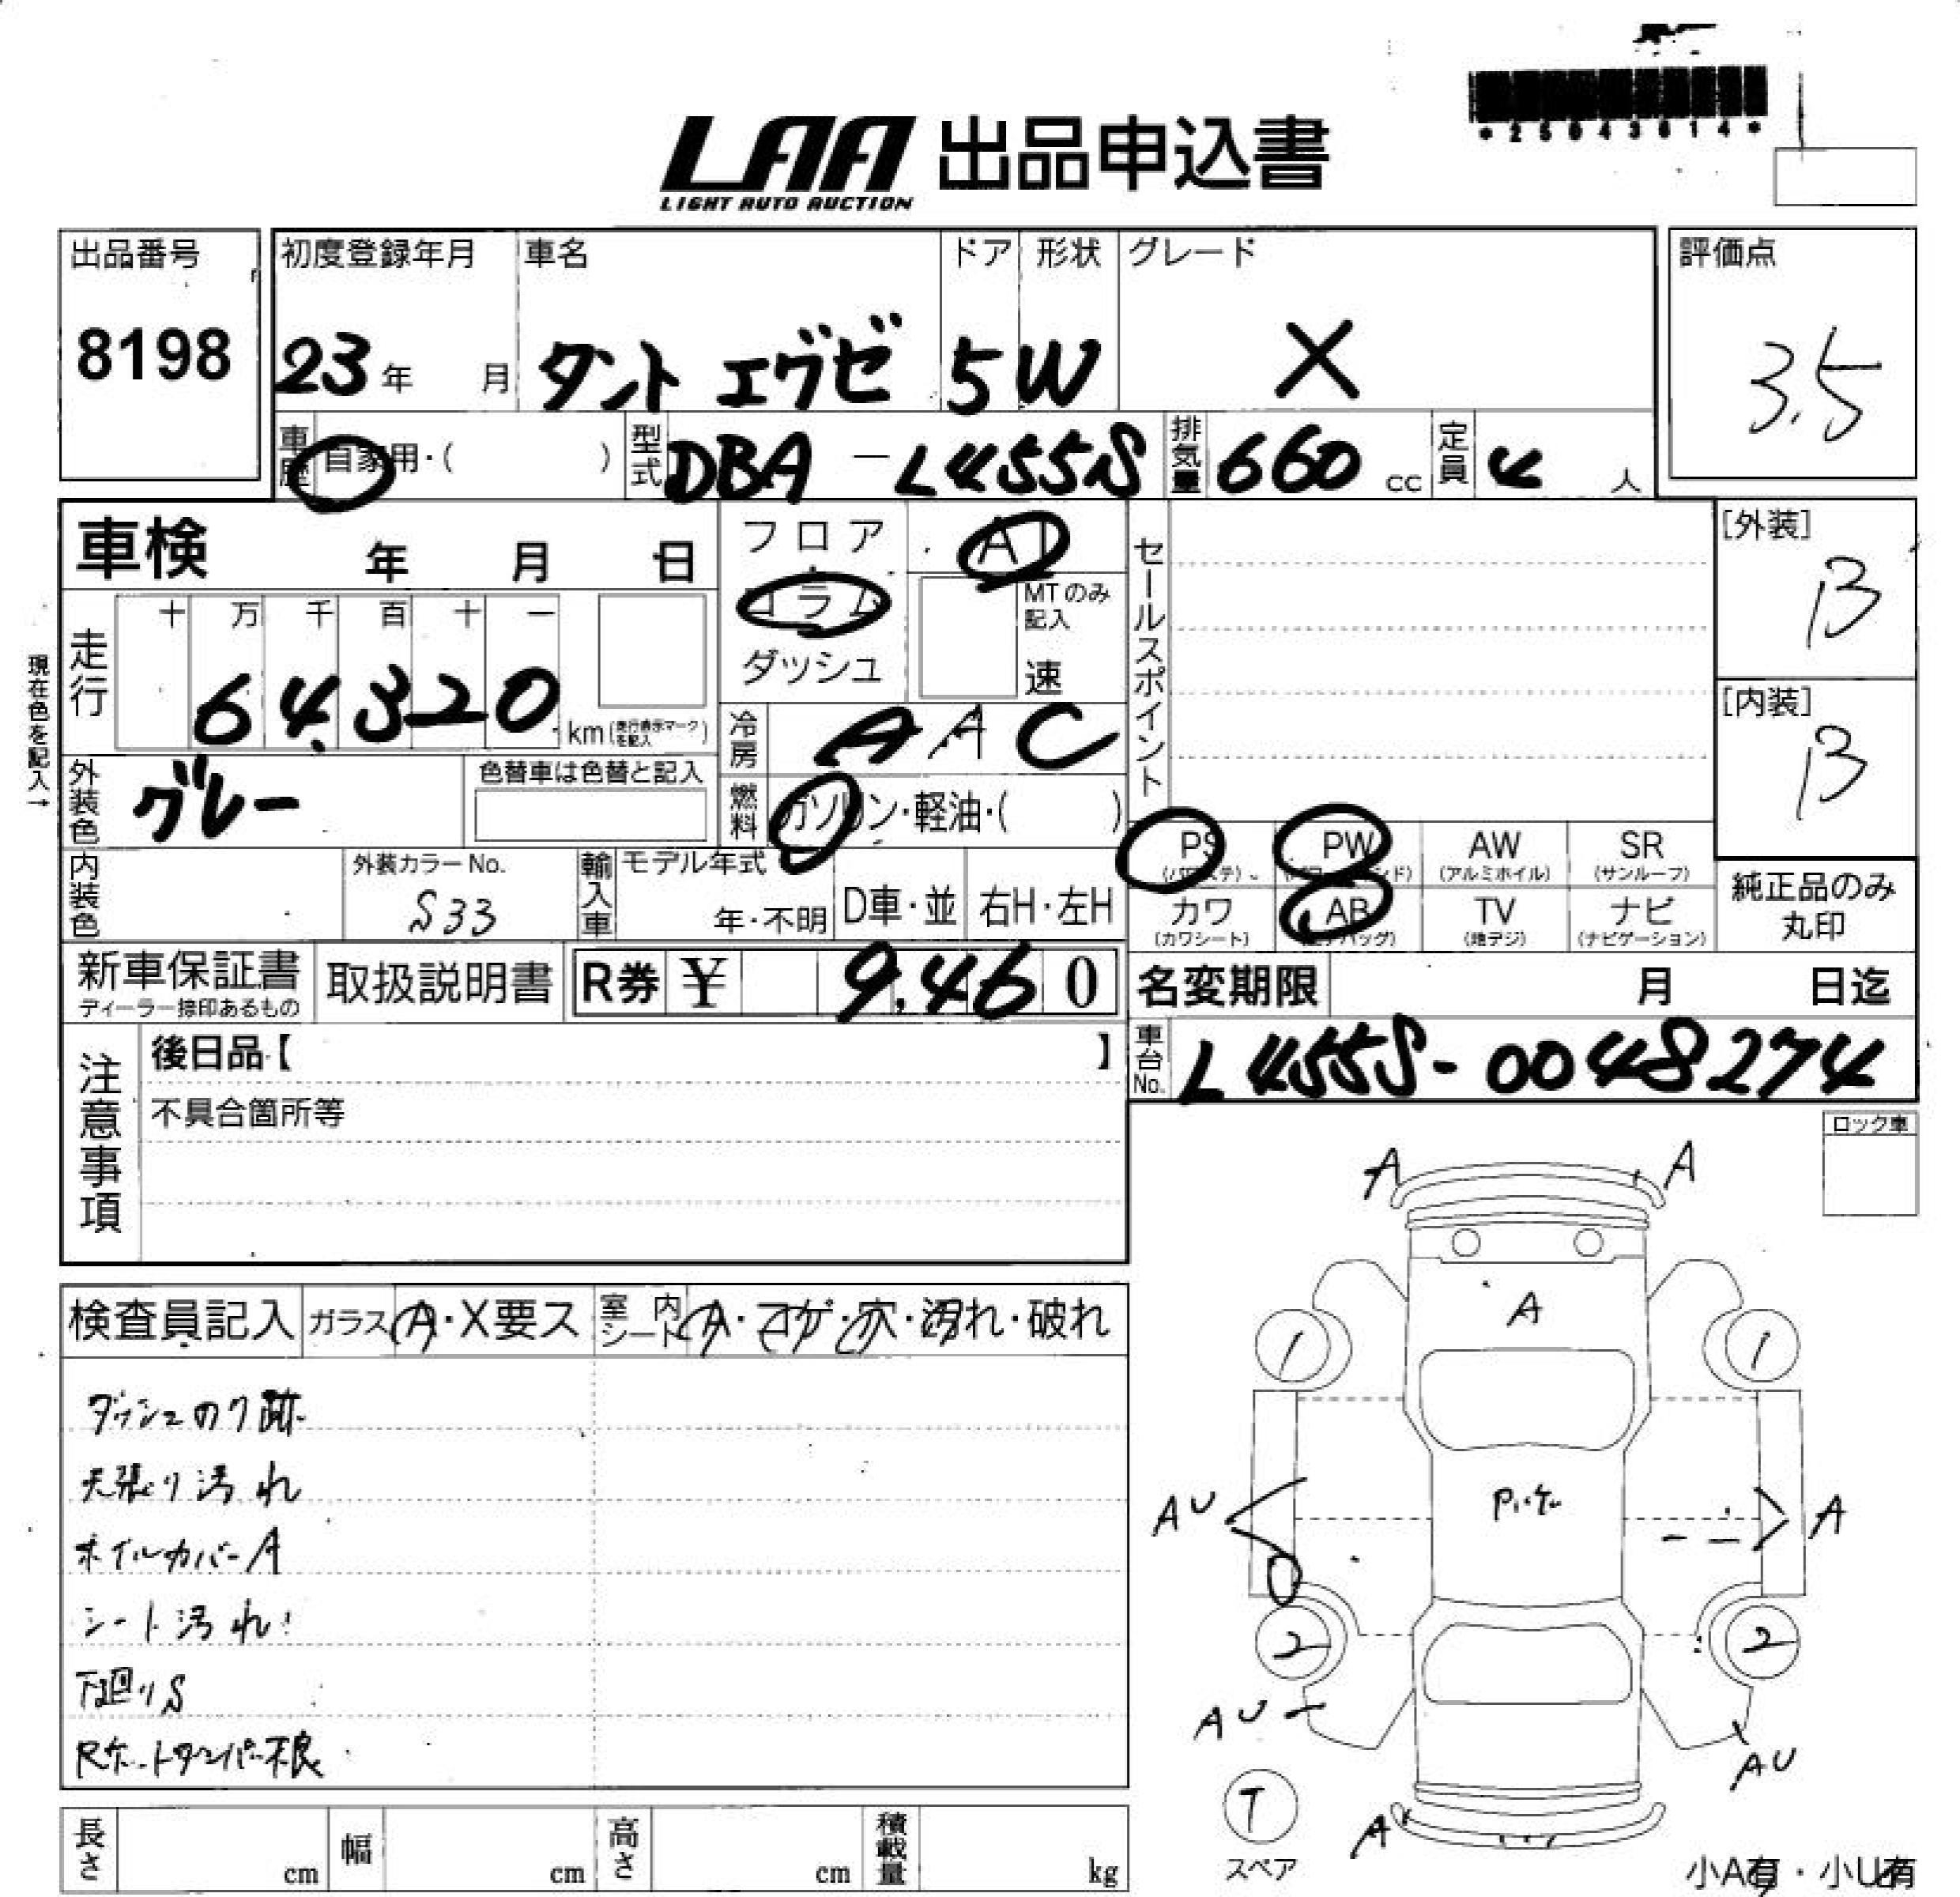 *25043814*
LAA 出品申込書
LIGHT AUTO AUCTION
出品番号
8198
初度登録年月 車名 ドア 形状 グレード
23年 月 タント エグゼ 5 W X
評価点
3.5
車歴 自家用・( ) 型式 DBA-L455S 排気量 660 cc 定員 4 人
車検 年 月 日
フロア
コラム
ダッシュ
AT
MTのみ記入
速
セールスポイント
[外装]
B
[内装]
B
現在色を記入→
走行 十 万 千 百 十 一
64,320 km(走行表示マークを記入)
冷房 A A C
外装色 グレー 色替車は色替と記入
燃料 ガソリン・軽油・( )
内装色 外装カラーNo. S33
輸入車 モデル年式 年・不明 D車・並 右H・左H
PS PW AW SR
(パワステ) (アルミホイル) (サンルーフ)
カワ AB TV ナビ
(カワシート) (エアバッグ) (地デジ) (ナビゲーション)
純正品のみ
丸印
新車保証書
ディーラー捺印あるもの
取扱説明書 R券 ¥ 9,460
名変期限 月 日迄
車台No. L455S-0048274
注意事項
後日品【 】
不具合箇所等
ロック車
検査員記入 ガラス A・X要ス 室内シート A・コゲ・穴・汚れ・破れ
ダッシュのり跡
天張り汚れ
ホイルカバーA
シート汚れ
下廻りS
Rゲートダンパー不良
A A
A
1 1
AU A
2 2
AU AU
T
スペア
A
長さ cm 幅 cm 高さ cm 積載量 kg
小A有・小U有